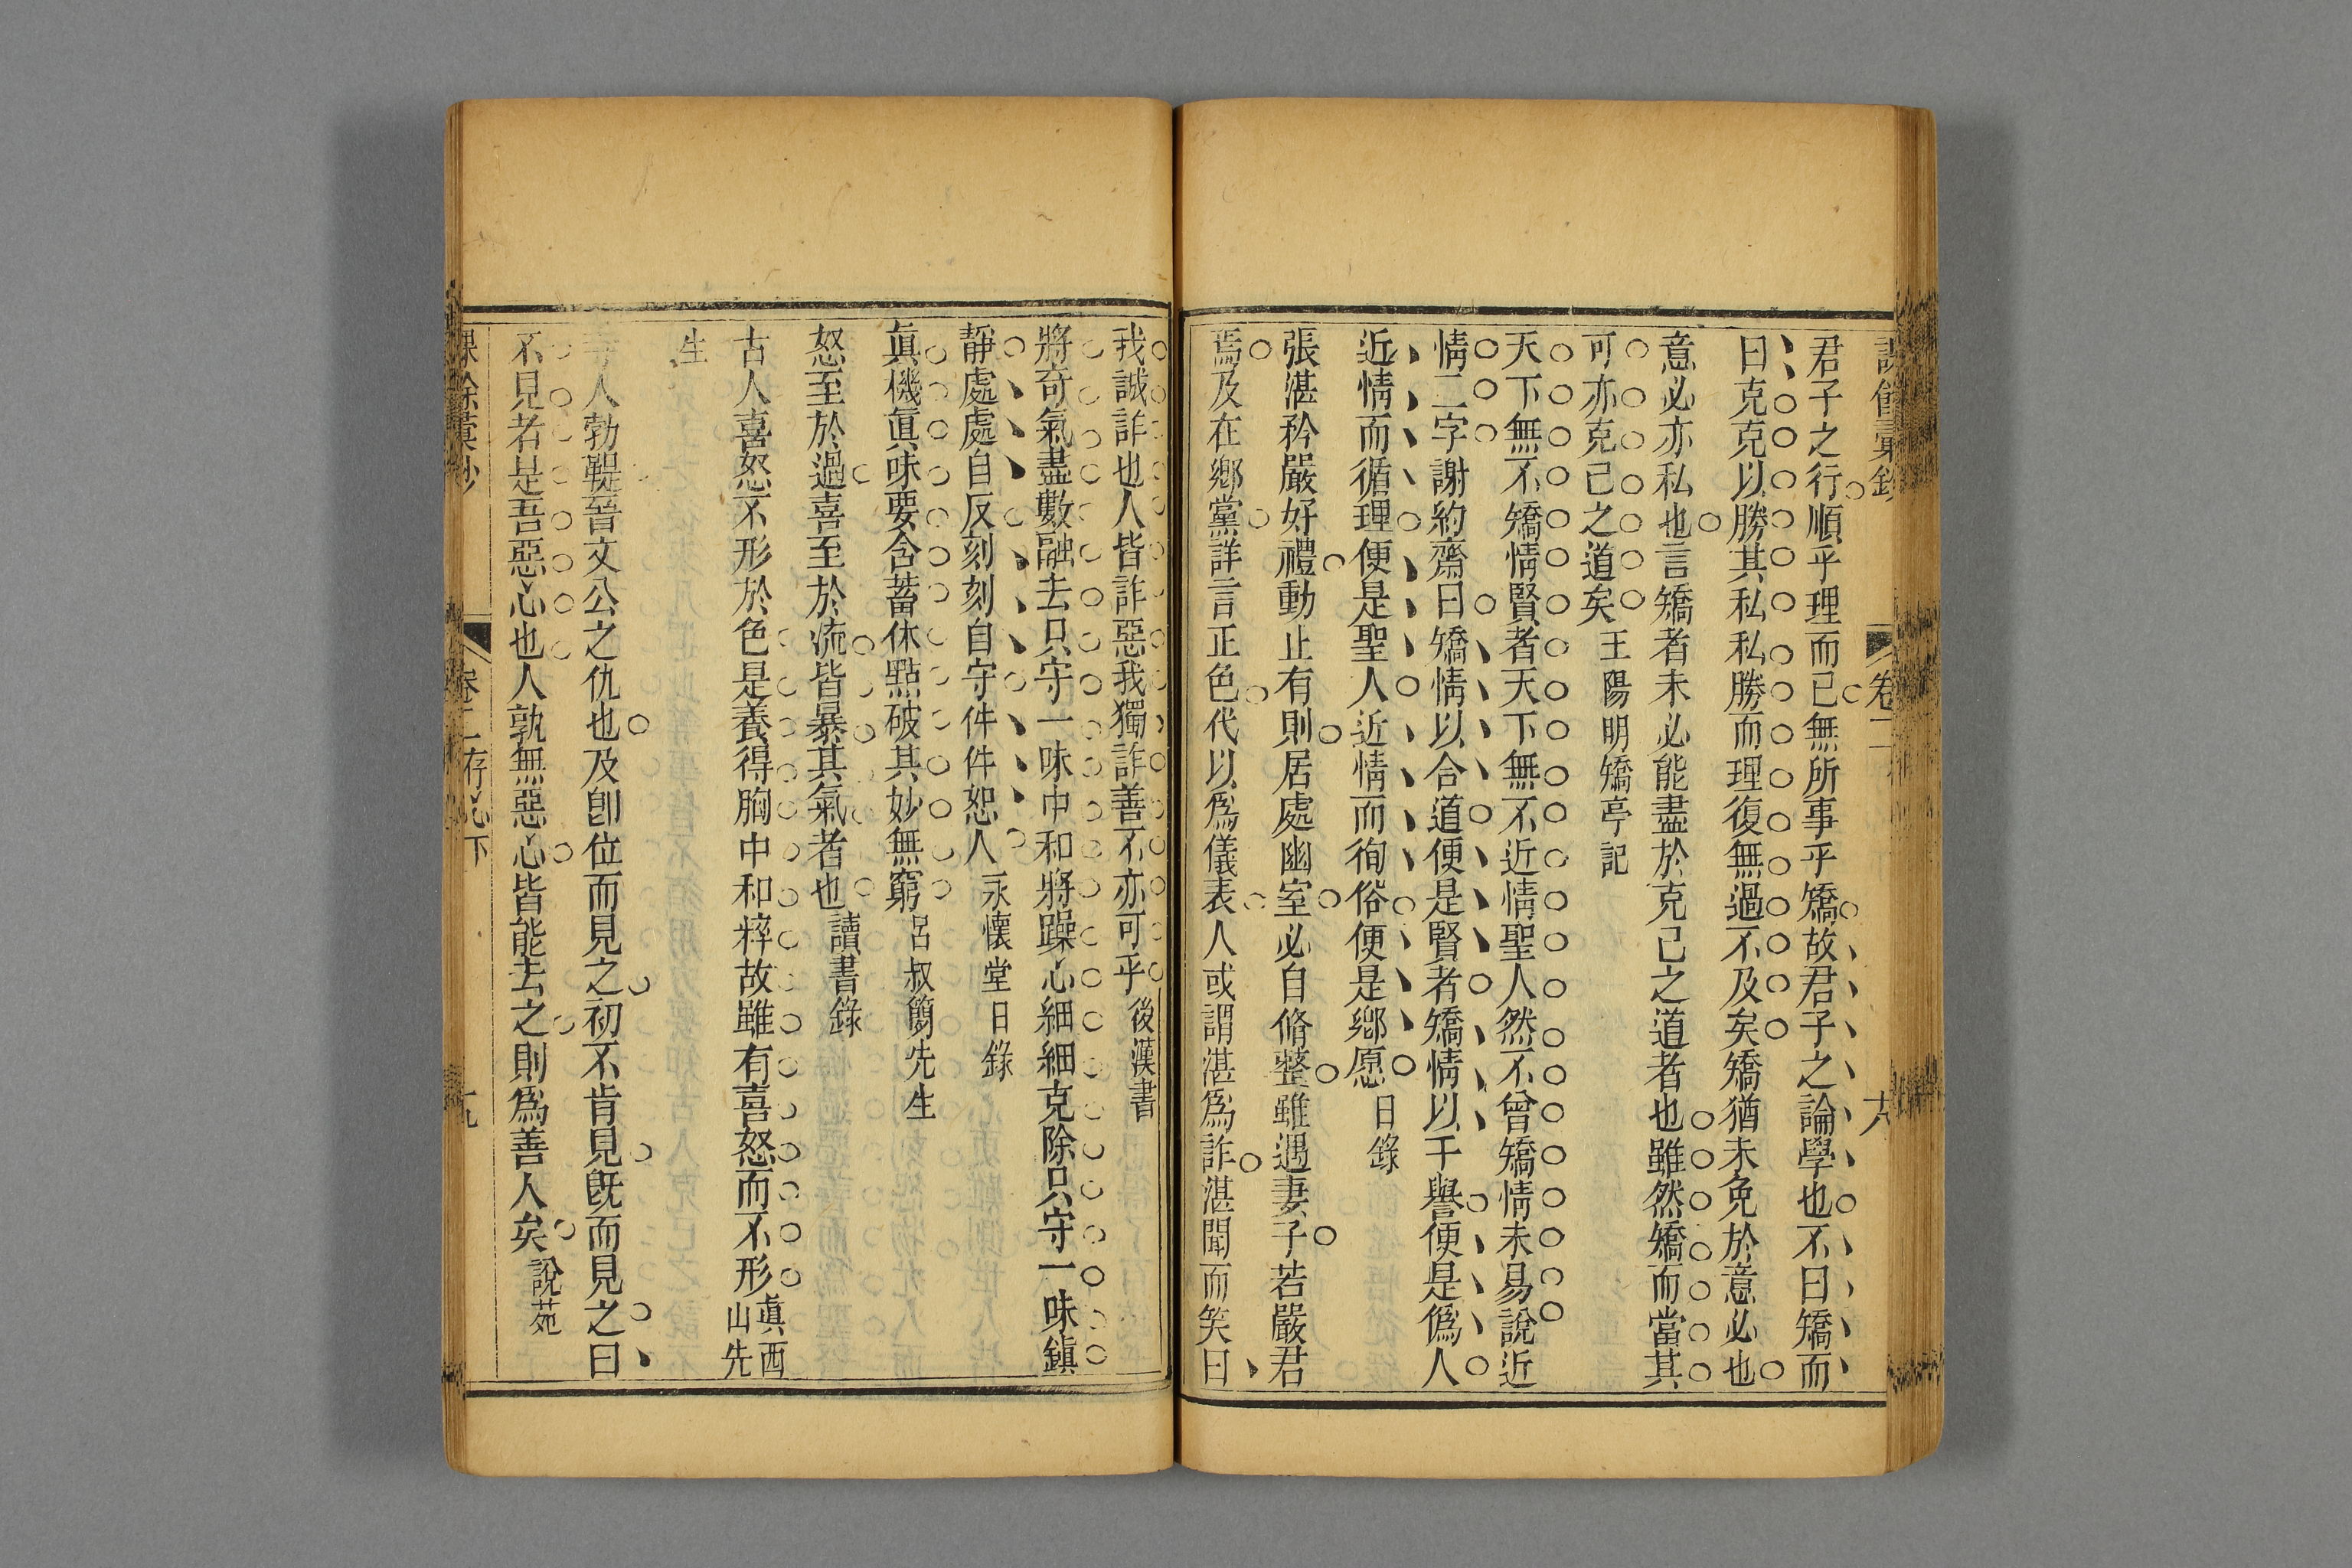 卷二
君子之行順乎理而已無所事乎矯故君子之論學也不曰矯而
曰克克以勝其私私勝而理復無過不及矣矯猶未免於意必也
意必亦私也言矯者未必能盡於克己之道者也雖然矯而當其
可亦克己之道矣王陽明矯亭記
天下無不矯情賢者天下無不近情聖人然不曾矯情未易說近
情二字謝約齋曰矯情以合道便是賢者矯情以干譽便是僞人
近情而循理便是聖人近情而徇俗便是鄉愿日錄
張湛矜嚴好禮動止有則居處幽室必自脩整雖遇妻子若嚴君
焉及在鄉黨詳言正色代以爲儀表人或謂湛爲詐湛聞而笑曰
我誠詐也人皆詐惡我獨詐善不亦可乎後漢書
將奇氣盡數融去只守一味中和將躁心細細克除只守一味鎮
靜處處自反刻刻自守件件恕人永懷堂日錄
眞機眞味要含蓄休點破其妙無窮呂叔簡先生
怒至於過喜至於流皆暴其氣者也讀書錄
古人喜怒不形於色是養得胸中和粹故雖有喜怒而不形眞西山先
生
寺人勃鞮晉文公之仇也及卽位而見之初不肯見旣而見之曰
不見者是吾惡心也人孰無惡心皆能去之則爲善人矣說苑
卷二存心下